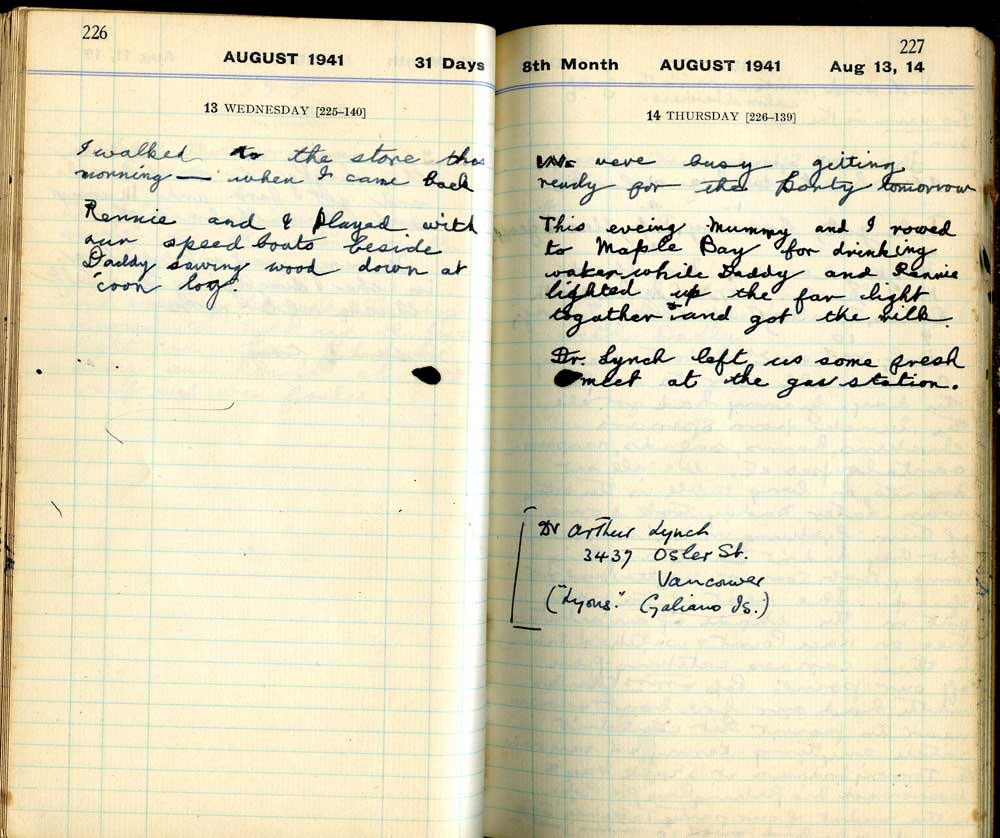 226
AUGUST 1941 31 Days
13 WEDNESDAY [225–140]
I walked to the store this
morning — when I came back
Rennie and I played with
our speed boats beside
Daddy sawing wood down at
'coon log.
227
8th Month AUGUST 1941 Aug 13, 14
14 THURSDAY [226–139]
We were busy gitting
ready for the Party tomorrow
This eveing Mummy and I rowed
to Maple Bay for drinking
water while Daddy and Rennie
lighted up the far light
togather and got the milk.
Dr. Lynch left us some fresh
meet at the gas station.
Dr Arthur Lynch
3437 Osler St.
Vancouver
("Lyons." Galiano Is.)